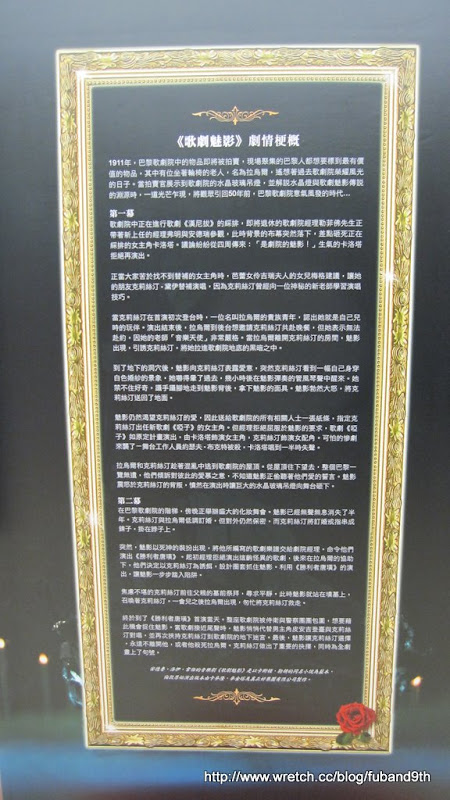 《歌劇魅影》劇情梗概
1911年，巴黎歌劇院中的物品即將被拍賣，現場聚集的巴黎人都想要標到最有價
值的物品，其中有位坐著輪椅的老人，名為拉烏爾，遙想著過去歌劇院榮耀風光
的日子。當拍賣官展示到歌劇院的水晶玻璃吊燈，並解說水晶燈與歌劇魅影傳說
的淵源時，一道光芒乍現，將觀眾引回50年前，巴黎歌劇院意氣風發的時代…
第一幕
歌劇院中正在進行歌劇《漢尼拔》的綵排，即將退休的歌劇院經理勒菲佛先生正
帶著新上任的經理弗明與安德瑞參觀，此時背景的布幕突然落下，差點砸死正在
綵排的女主角卡洛塔。議論紛紛從四周傳來：「是劇院的魅影！」生氣的卡洛塔
拒絕再演出。
正當大家苦於找不到替補的女主角時，芭蕾女伶吉瑞夫人的女兒梅格建議，讓她
的朋友克莉絲汀．黛伊替補演唱，因為克莉絲汀曾經向一位神秘的新老師學習演唱
技巧。
當克莉絲汀在首演初次登台時，一位名叫拉烏爾的貴族青年，認出她就是自己兒
時的玩伴。演出結束後，拉烏爾到後台想邀請克莉絲汀共赴晚餐，但她表示無法
赴約，因她的老師「音樂天使」非常嚴格。當拉烏爾離開克莉絲汀的房間，魅影
出現，引誘克莉絲汀，將她拉進歌劇院地底的黑暗之中。
到了地下的洞穴後，魅影向克莉絲汀表露愛意，突然克莉絲汀看到一幅自己身穿
白色婚紗的景象，她嚇得暈了過去。幾小時後在魅影彈奏的管風琴聲中醒來。她
禁不住好奇，躡手躡腳地走到魅影背後，拿下魅影的面具。魅影勃然大怒，將克
莉絲汀送回了地面。
魅影仍然渴望克莉絲汀的愛，因此送給歌劇院的所有相關人士一張紙條，指定克
莉絲汀出任新歌劇《啞子》的女主角。但經理拒絕屈服於魅影的要求，歌劇《啞
子》如原定計畫演出，由卡洛塔飾演女主角，克莉絲汀飾演女配角。可怕的慘劇
來襲了－舞台工作人員約瑟夫．布克特被殺，卡洛塔唱到一半時失聲。
拉烏爾和克莉絲汀趁著混亂中逃到歌劇院的屋頂。從屋頂往下望去，整個巴黎一
覽無遺。他們傾訴對彼此的愛慕之意，不知道魅影正偷聽著他們愛的誓言。魅影
震怒於克莉絲汀的背叛，憤然在演出時讓巨大的水晶玻璃吊燈向舞台砸下。
第二幕
在巴黎歌劇院的階梯，傍晚正舉辦盛大的化妝舞會。魅影已經無聲無息消失了半
年。克莉絲汀與拉烏爾低調訂婚，但對外仍然保密，而克莉絲汀將訂婚戒指串成
鍊子，掛在脖子上。
突然，魅影以死神的裝扮出現，將他所編寫的歌劇樂譜交給劇院經理，命令他們
演出《勝利者唐璜》。起初經理拒絕演出這齣怪異的歌劇，後來在拉烏爾的協助
下，他們決定以克莉絲汀為誘餌，設計圈套抓住魅影。利用《勝利者唐璜》的演
出，讓魅影一步步踏入陷阱。
焦慮不堪的克莉絲汀前往父親的墓前祭拜、尋求平靜，此時魅影就站在墳墓上，
召喚著克莉絲汀，一會兒之後拉烏爾出現，匆忙將克莉絲汀救走。
終於到了《勝利者唐璜》首演當天，整座歌劇院被侍衛與警察團團包圍，想要藉
此機會捉住魅影。當歌劇接近尾聲時，魅影悄悄代替男主角皮安吉登台與克莉絲
汀對唱，並再次挾持克莉絲汀到歌劇院的地下迷宮，最後，魅影讓克莉絲汀選擇
，永遠不離開他，或看他殺死拉烏爾。克莉絲汀做出了重要的抉擇，同時為全劇
畫上了句號。
http://www.wretch.cc/blog/fuband9th